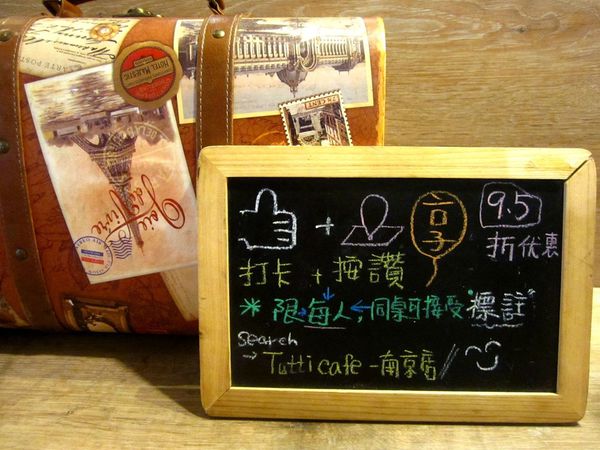 + 享 9.5
折优惠
打卡 + 按讚
* 限→每人,←同桌可接受"標註"
search
→ Tutti cafe - 南京店//
HOTEL MAJESTIC
CARTE POSTALE